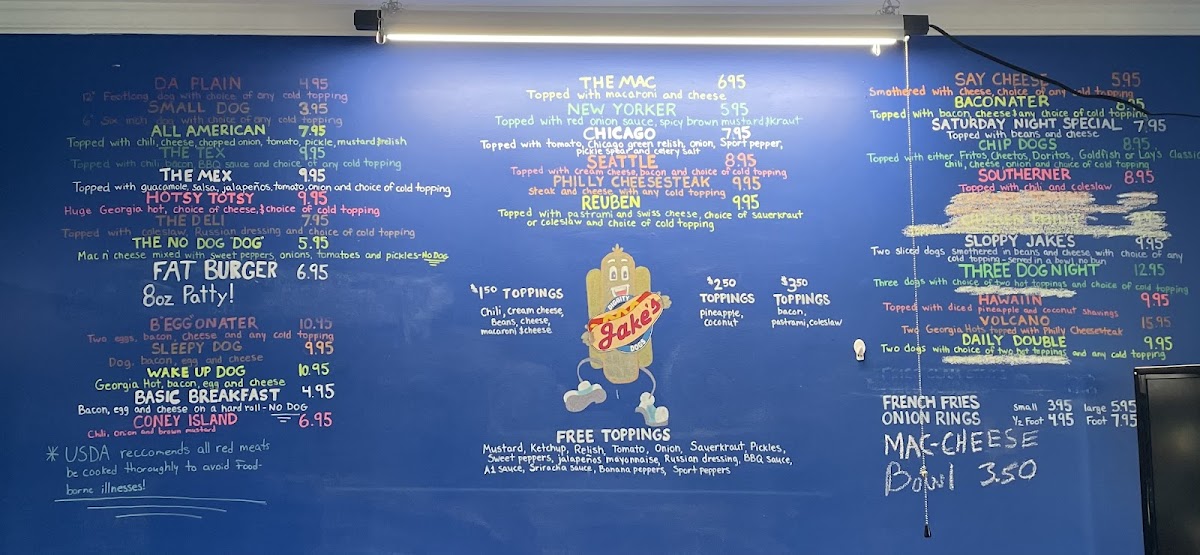 DA PLAIN 4.95
12" Footlong dog with choice of any cold topping
SMALL DOG 3.95
6" Six inch dog with choice of any cold topping
ALL AMERICAN 7.95
Topped with chili, cheese, chopped onion, tomato, pickle, mustard & relish
THE TEX 9.95
Topped with chili, bacon, BBQ sauce and choice of any cold topping
THE MEX 9.95
Topped with guacamole, salsa, jalapeños, tomato, onion and choice of cold topping
HOTSY TOTSY 9.95
Huge Georgia hot, choice of cheese, & choice of cold topping
THE DELI 7.95
Topped with coleslaw, Russian dressing and choice of cold topping
THE NO DOG "DOG" 5.95
Mac n' cheese mixed with sweet peppers, onions, tomatoes and pickles-NO DOG
FAT BURGER 6.95
8oz Patty!
B"EGG"ONATER 10.95
Two eggs, bacon, cheese and any cold topping
SLEEPY DOG 9.95
Dog, bacon, egg and cheese
WAKE UP DOG 10.95
Georgia Hot, bacon, egg and cheese
BASIC BREAKFAST 4.95
Bacon, egg and cheese on a hard roll-NO DOG
CONEY ISLAND 6.95
Chili, onion and brown mustard
* USDA reccomends all red meats
be cooked thoroughly to avoid food-
borne illnesses!
THE MAC 6.95
Topped with macaroni and cheese
NEW YORKER 5.95
Topped with red onion sauce, spicy brown mustard & kraut
CHICAGO 7.95
Topped with tomato, Chicago green relish, onion, Sport pepper,
pickle spear and celery salt
SEATTLE 8.95
Topped with cream cheese, bacon and choice of cold topping
PHILLY CHEESESTEAK 9.95
Steak and cheese with any cold topping
REUBEN 9.95
Topped with pastrami and swiss cheese, choice of sauerkraut
or coleslaw and choice of cold topping
$1.50 TOPPINGS
Chili, cream cheese,
Beans, cheese,
macaroni & cheese
DIGGITY
Jake's
DOGS
$2.50
TOPPINGS
pineapple,
coconut
$3.50
TOPPINGS
bacon,
pastrami, coleslaw
FREE TOPPINGS
Mustard, Ketchup, Relish, Tomato, Onion, Sauerkraut, Pickles,
Sweet peppers, jalapeños mayonnaise, Russian dressing, BBQ sauce,
A1 sauce, Sriracha sauce, Banana peppers, Sport peppers
SAY CHEESE 5.95
Smothered with cheese, choice of any cold topping
BACONATER 8.95
Topped with bacon, cheese & any choice of cold topping
SATURDAY NIGHT SPECIAL 7.95
Topped with beans and cheese
CHIP DOGS 8.95
Topped with either Fritos, Cheetos, Doritos, Goldfish or Lay's Classic
chili, cheese, onion and choice of cold topping
SOUTHERNER 8.95
Topped with chili and coleslaw
SLOPPY JAKE'S 9.95
Two sliced dogs smothered in beans and cheese with choice of any
cold topping - served in a bowl no bun
THREE DOG NIGHT 12.95
Three dogs with choice of two hot toppings and choice of cold topping
HAWAIIN 9.95
Topped with diced pineapple and coconut shavings
VOLCANO 15.95
Two Georgia Hots topped with Philly Cheesesteak
DAILY DOUBLE 9.95
Two dogs with choice of two hot toppings and any cold topping
FRENCH FRIES small 3.95 large 5.95
ONION RINGS 1/2 Foot 4.95 Foot 7.95
MAC-CHEESE
Bowl 3.50